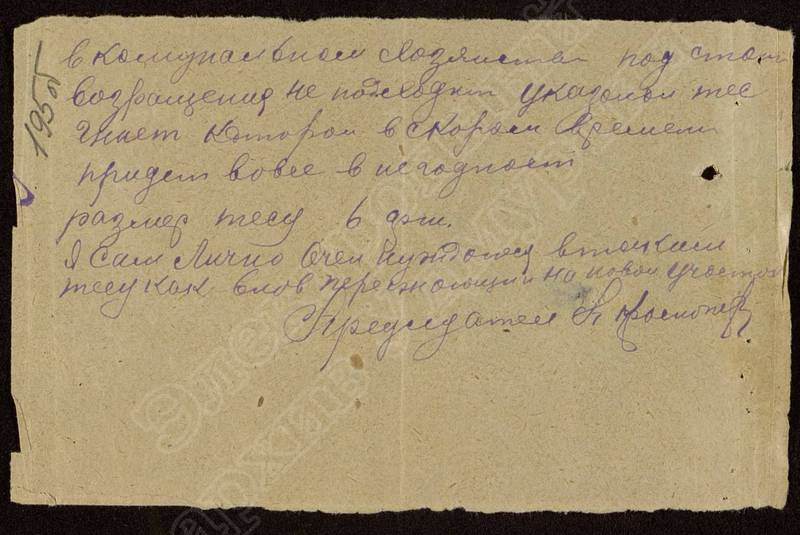 195 об
в комунальном хозяистве под
возращения не подходит указаной тес
гниет которой в скором времем
придет вовсе в негодност
размер тесу 6 дм.
Я сам Лично Очен Нуждаюся в таким
тесу как внов переежающий на новой участок
Председател